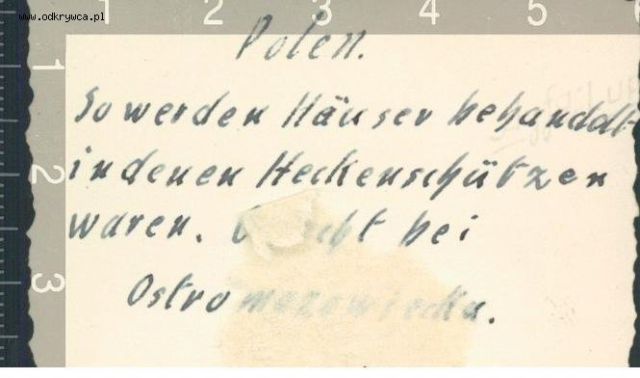 www.odkrywca.pl
1 2 3 4 5 6
1
2
3
Polen.
So werden Häuser behandelt
in denen Heckenschützen
waren. bei
Ostro mazowiecka.